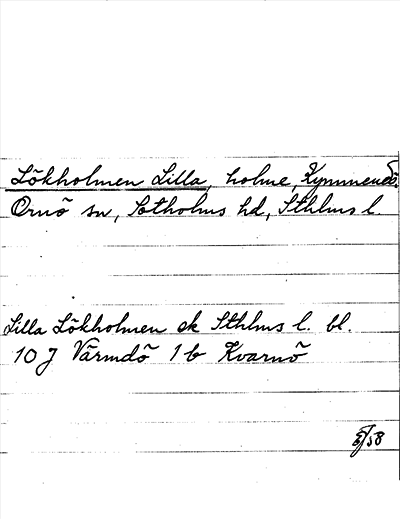 Lökholmen Lilla, holme, Kymmendö.
Ornö sn, Sotholms hd, Sthlms l.
Lilla Lökholmen ek Sthlms l. bl.
10 J Värmdö 1 b Kvarnö
/58